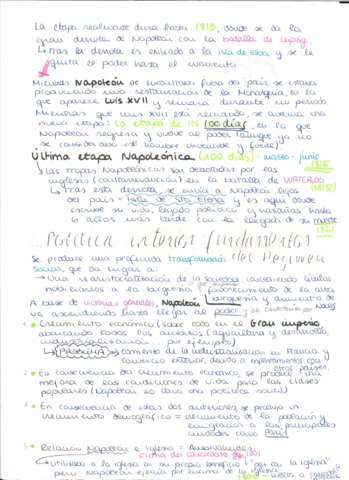 La etapa realmente dura hasta 1813, donde se da la
gran derrota de Napoleón con la batalla de Leipzig
↳ tras la derrota es exiliado a la isla de Elba y se le
quita el poder hasta el momento.
Mientras Napoleón se encontraba fuera del país, se estaba
produciendo una restauración de la Monarquía, en la
que aparece Luis XVII y reinará durante un periodo.
Mientras que Luis XVII está reinando, se avecina una
nueva etapa: La etapa de los 100 días, en la que
Napoleón regresa y vuelve al poder (aunque ya no
se consideraba ese hombre invencible y fuerte).
Última etapa Napoleónica (100 días) - marzo - junio
1815
↳ las tropas Napoleónicas son derrotadas por los
ingleses (definitivamente) en la batalla de WATERLOO
↳ tras esta derrota se envía a Napoleón lejos (1815)
del país = Isla de Sta Elena y es aquí donde
escribe su vida, legado político y hazañas hasta
6 años más tarde con la llegada de su muerte
1821
Política interior: fundamentos
del Régimen
Se produce una profunda transformación
Social, que da lugar a:
→ Una rearistocratización de la sociedad concediendo títulos
nobiliarios a la burguesía
A base de victorias ganadas, Napoleón
va ascendiendo hasta llegar al poder y se caracteriza por
1 Crecimiento económico (sobre todo en el Gran Imperio,
abarcando todos los ámbitos (agricultura y desarrollo
industrialización... por ejemplo)
fomento de la industrialización en Francia y
comercio exterior, debido a enfrentamientos con
otros países.
2 En consecuencia del crecimiento económico, se produce una
mejora de las condiciones de vida para las clases
populares (Napoleón no llevó una política social)
3 En consecuencia de estas dos anteriores, se produjo un
crecimiento demográfico = crecimiento de la población y
emigración a las principales
ciudades como París
Relación Napoleón e Iglesia = Ambivalentes
firma del concordato 1801
↳ utilizaba a la iglesia en su propio beneficio "paz con la iglesia"
pero Napoleón ejercía por encima de la iglesia